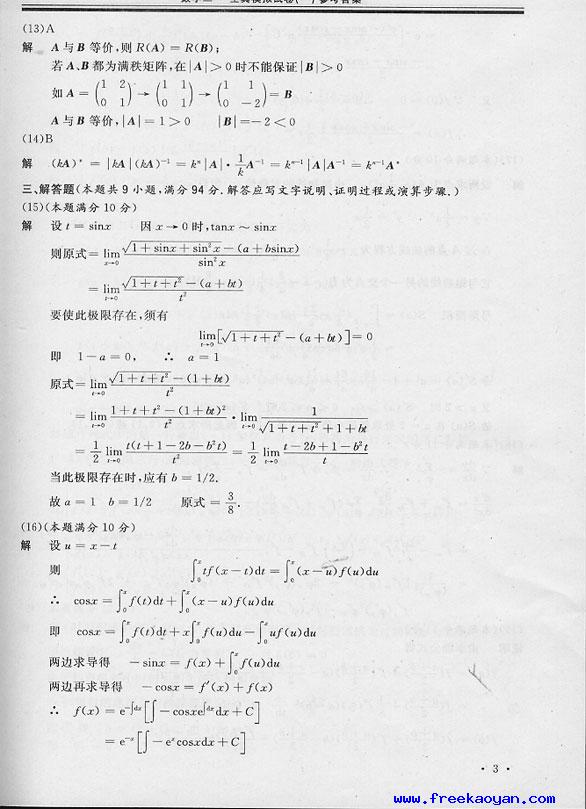 (13)A
解 A与B等价,则R(A) = R(B);
若A、B都为满秩矩阵,在|A|>0时不能保证|B|>0
如A = (1 2; 0 1) → (1 1; 0 1) → (1 1; 0 -2) = B
A与B等价,|A| = 1>0 |B| = -2<0
(14)B
解 (kA)* = |kA|(kA)⁻¹ = kⁿ|A|·1/k A⁻¹ = kⁿ⁻¹|A|A⁻¹ = kⁿ⁻¹A*
三、解答题(本题共9小题,满分94分.解答应写文字说明、证明过程或演算步骤.)
(15)(本题满分10分)
解 设t = sinx 因x→0时,tanx ~ sinx
则原式 = lim_{x→0} (√(1+sinx+sin²x) - (a+bsinx))/sin²x
= lim_{t→0} (√(1+t+t²) - (a+bt))/t²
要使此极限存在,须有
lim_{t→0}[√(1+t+t²) - (a+bt)] = 0
即 1-a = 0, ∴ a = 1
原式 = lim_{t→0} (√(1+t+t²) - (1+bt))/t²
= lim_{t→0} (1+t+t²-(1+bt)²)/t² · lim_{t→0} 1/(√(1+t+t²)+1+bt)
= 1/2 lim_{t→0} t(t+1-2b-b²t)/t² = 1/2 lim_{t→0} (t-2b+1-b²t)/t
当此极限存在时,应有b = 1/2.
故a = 1 b = 1/2 原式 = 3/8.
(16)(本题满分10分)
解 设u = x-t
则 ∫₀ˣ tf(x-t)dt = ∫₀ˣ (x-u)f(u)du
∴ cosx = ∫₀ˣ f(t)dt + ∫₀ˣ (x-u)f(u)du
即 cosx = ∫₀ˣ f(t)dt + x∫₀ˣ f(u)du - ∫₀ˣ uf(u)du
两边求导得 -sinx = f(x) + ∫₀ˣ f(u)du
两边再求导得 -cosx = f′(x) + f(x)
∴ f(x) = e^{-∫dx}[∫-cosxe^{∫dx}dx + C]
= e⁻ˣ[∫-eˣcosxdx + C]
· 3 ·
www.freekaoyan.com